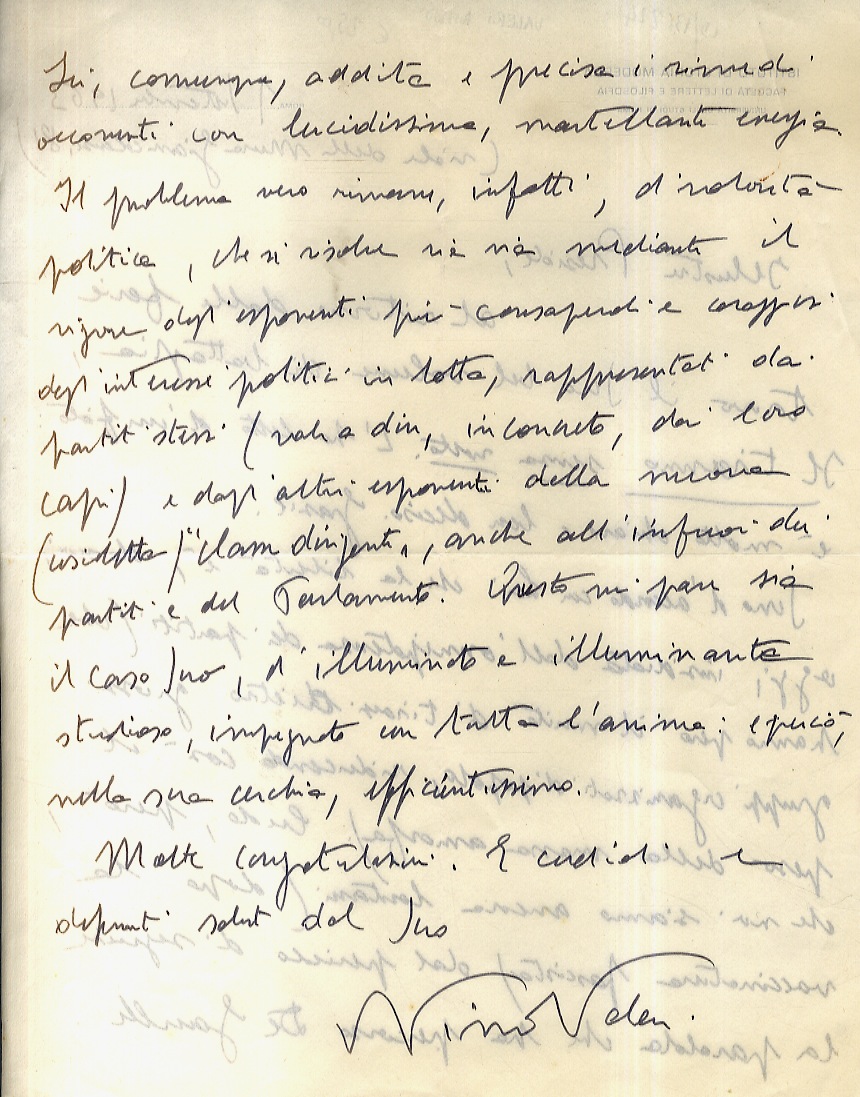 Lei, comunque, addita e precisa i rimedi
occorrenti con lucidissima, martellante energia.
Il problema vero rimane, infatti, di volontà
politica, che si risolve via via mediante il
vigore degl'esponenti più consapevoli e coraggiosi
degl'interessi politici in lotta, rappresentati dai
partiti stessi (vale a dire, in concreto, dai loro
capi) e dagl'altri esponenti della nuova
(cosidetta) "classe dirigente", anche all'infuori dei
partiti e del Parlamento. Questo mi pare sia
il caso Suo, d'illuminato e illuminante
studioso, impegnato con tutta l'anima: e perciò,
nella sua cerchia, efficientissimo.
Molte congratulazioni. E cordiali e
deferenti saluti dal Suo
Nino Valeri.